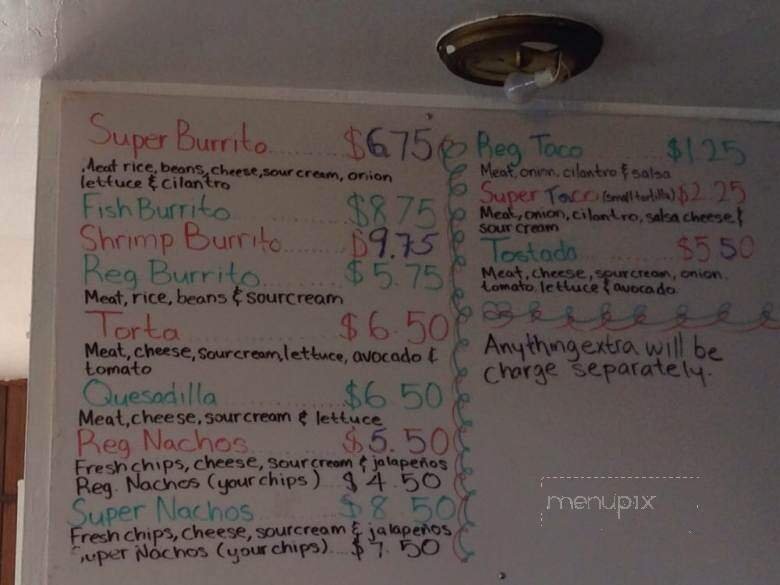 Super Burrito........... $6.75
Meat rice, beans, cheese, sour cream, onion
lettuce & cilantro
Fish Burrito........... $8.75
Shrimp Burrito........ $9.75
Reg Burrito.......... $5.75
Meat, rice, beans & sourcream
Torta................. $6.50
Meat, cheese, sourcream, lettuce, avocado &
tomato
Quesadilla........... $6 50
Meat, cheese, sour cream & lettuce
Reg Nachos......... $5.50
Fresh chips, cheese, sour cream & jalapeños
Reg. Nachos (your chips) $4.50
Super Nachos........ $8 50
Fresh chips, cheese, sourcream & jalapeños
Super Nachos (your chips)...$7.50
Reg Taco $1.25
Meat, onin, cilantro & salsa
Super Taco (small tortilla) $2.25
Meat, onion, cilantro, salsa cheese &
sour cream
Tostada......... $5 50
Meat, cheese, sourcream, onion.
tomato, lettuce & avocado
Anything extra will be
charge separately.
menupix